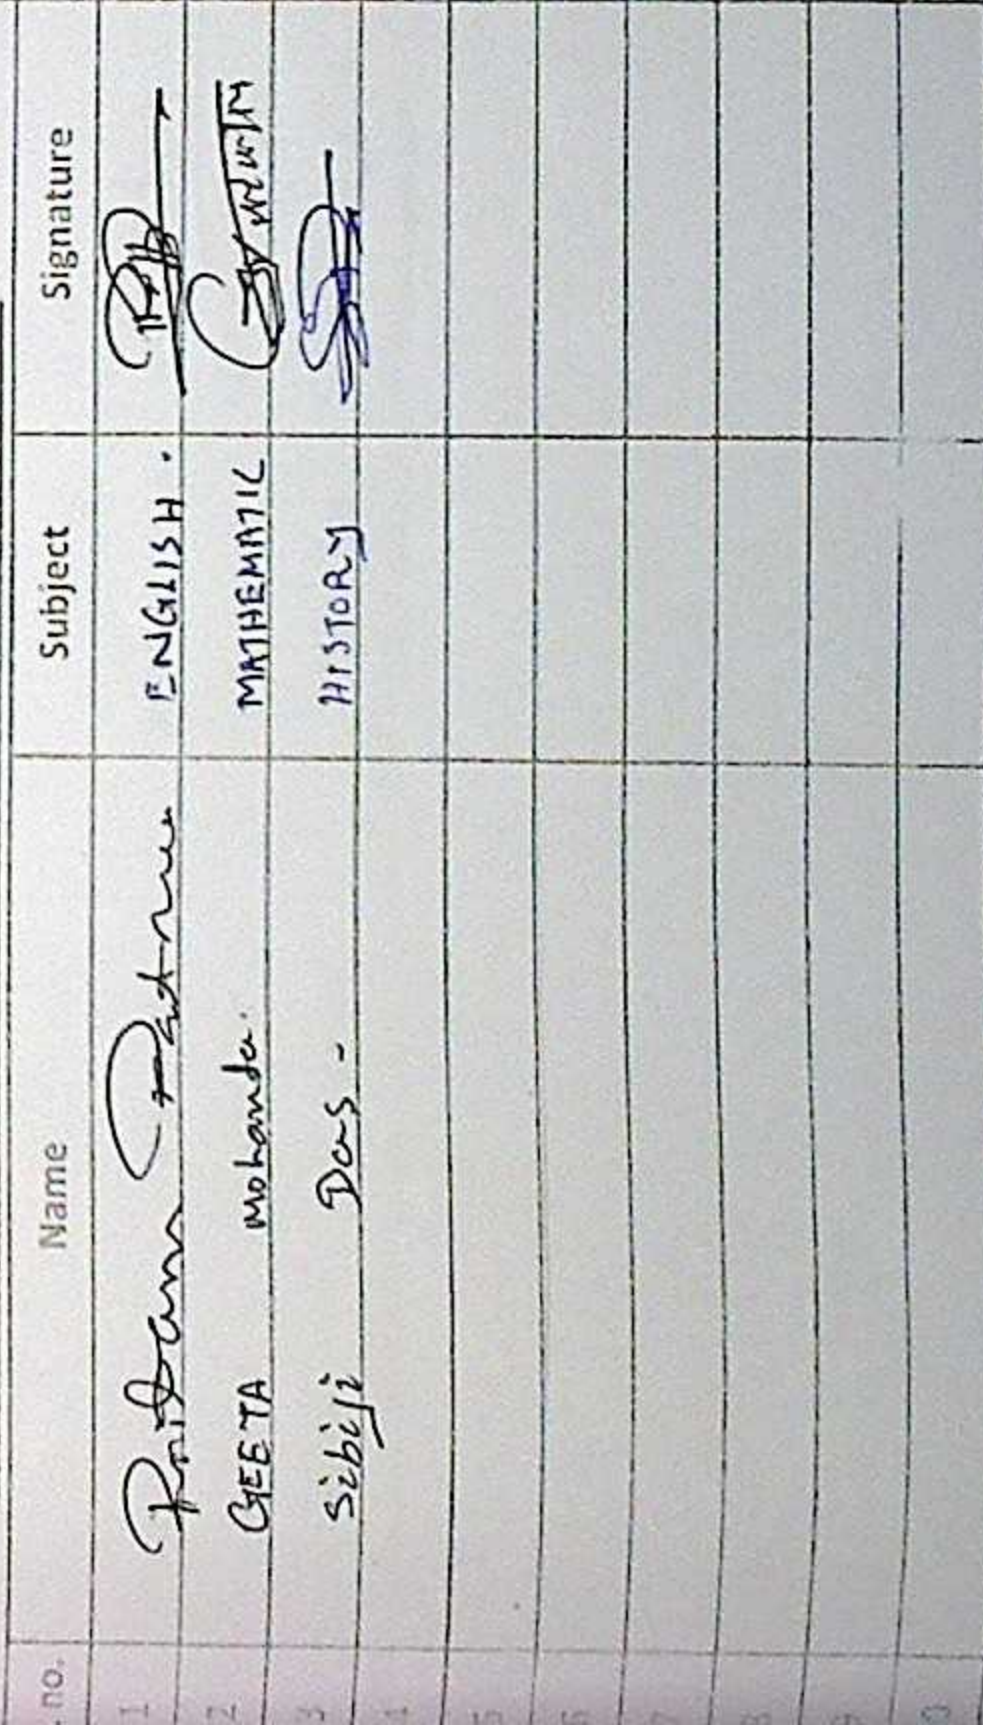 . no. Name Subject Signature
1 Pritam Patra ENGLISH .
2 GEETA mohanda. MATHEMATIC
3 Sibiji Das - HISTORY
4
5
6
7
8
9
0